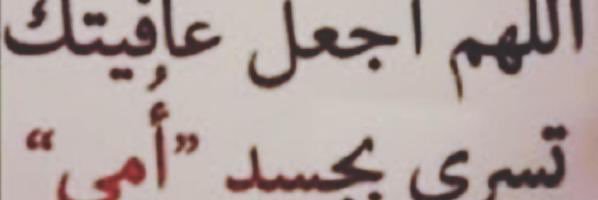 اللهم اجعل عافيتك
تسري بجسد "أُمي"